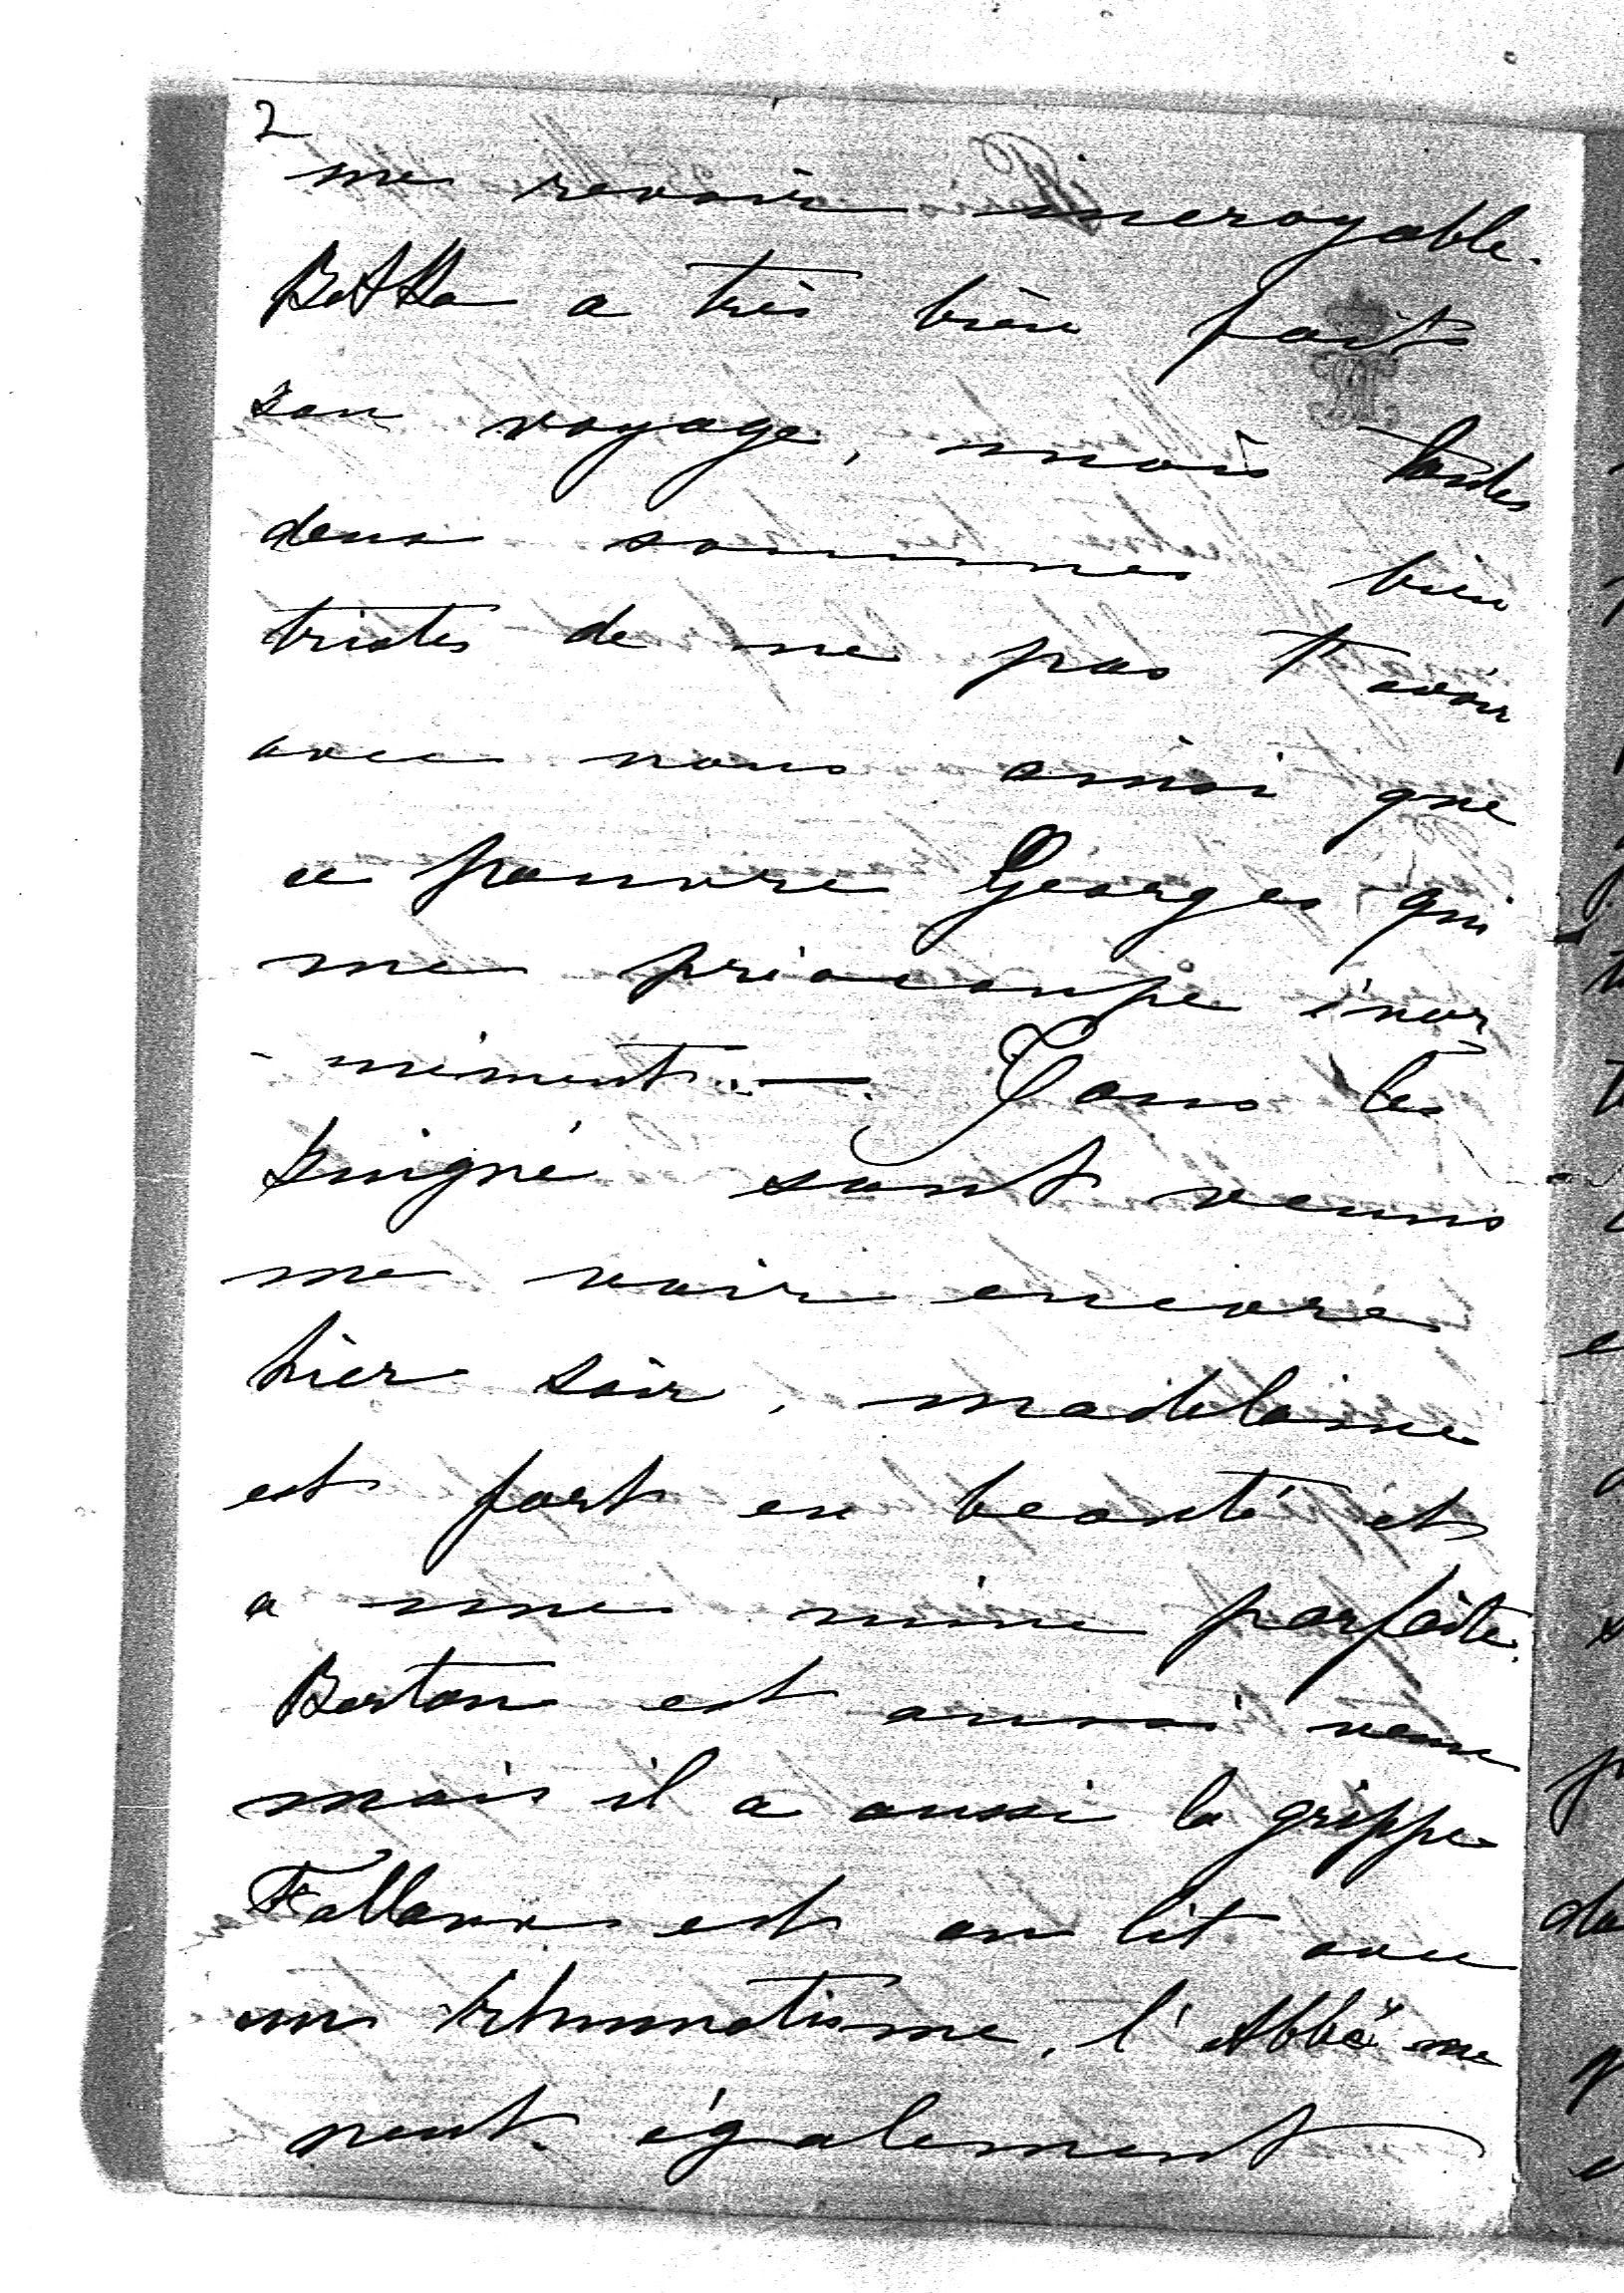 2
me revoir incroyable.
a très bien fait
son voyage, mais toutes
deux sommes bien
tristes de ne pas t'avoir
avec nous ainsi que
ce pauvre Georges qui
me préoccupe énor
-mément. — Tous les
sont venus
me voir encore
hier soir, madelaine
est fort en beauté et
a une mine parfaite.
Berton est aussi venu
mais il a aussi la grippe
est au lit avec
un rhumatisme, l'Abbé me
peut également